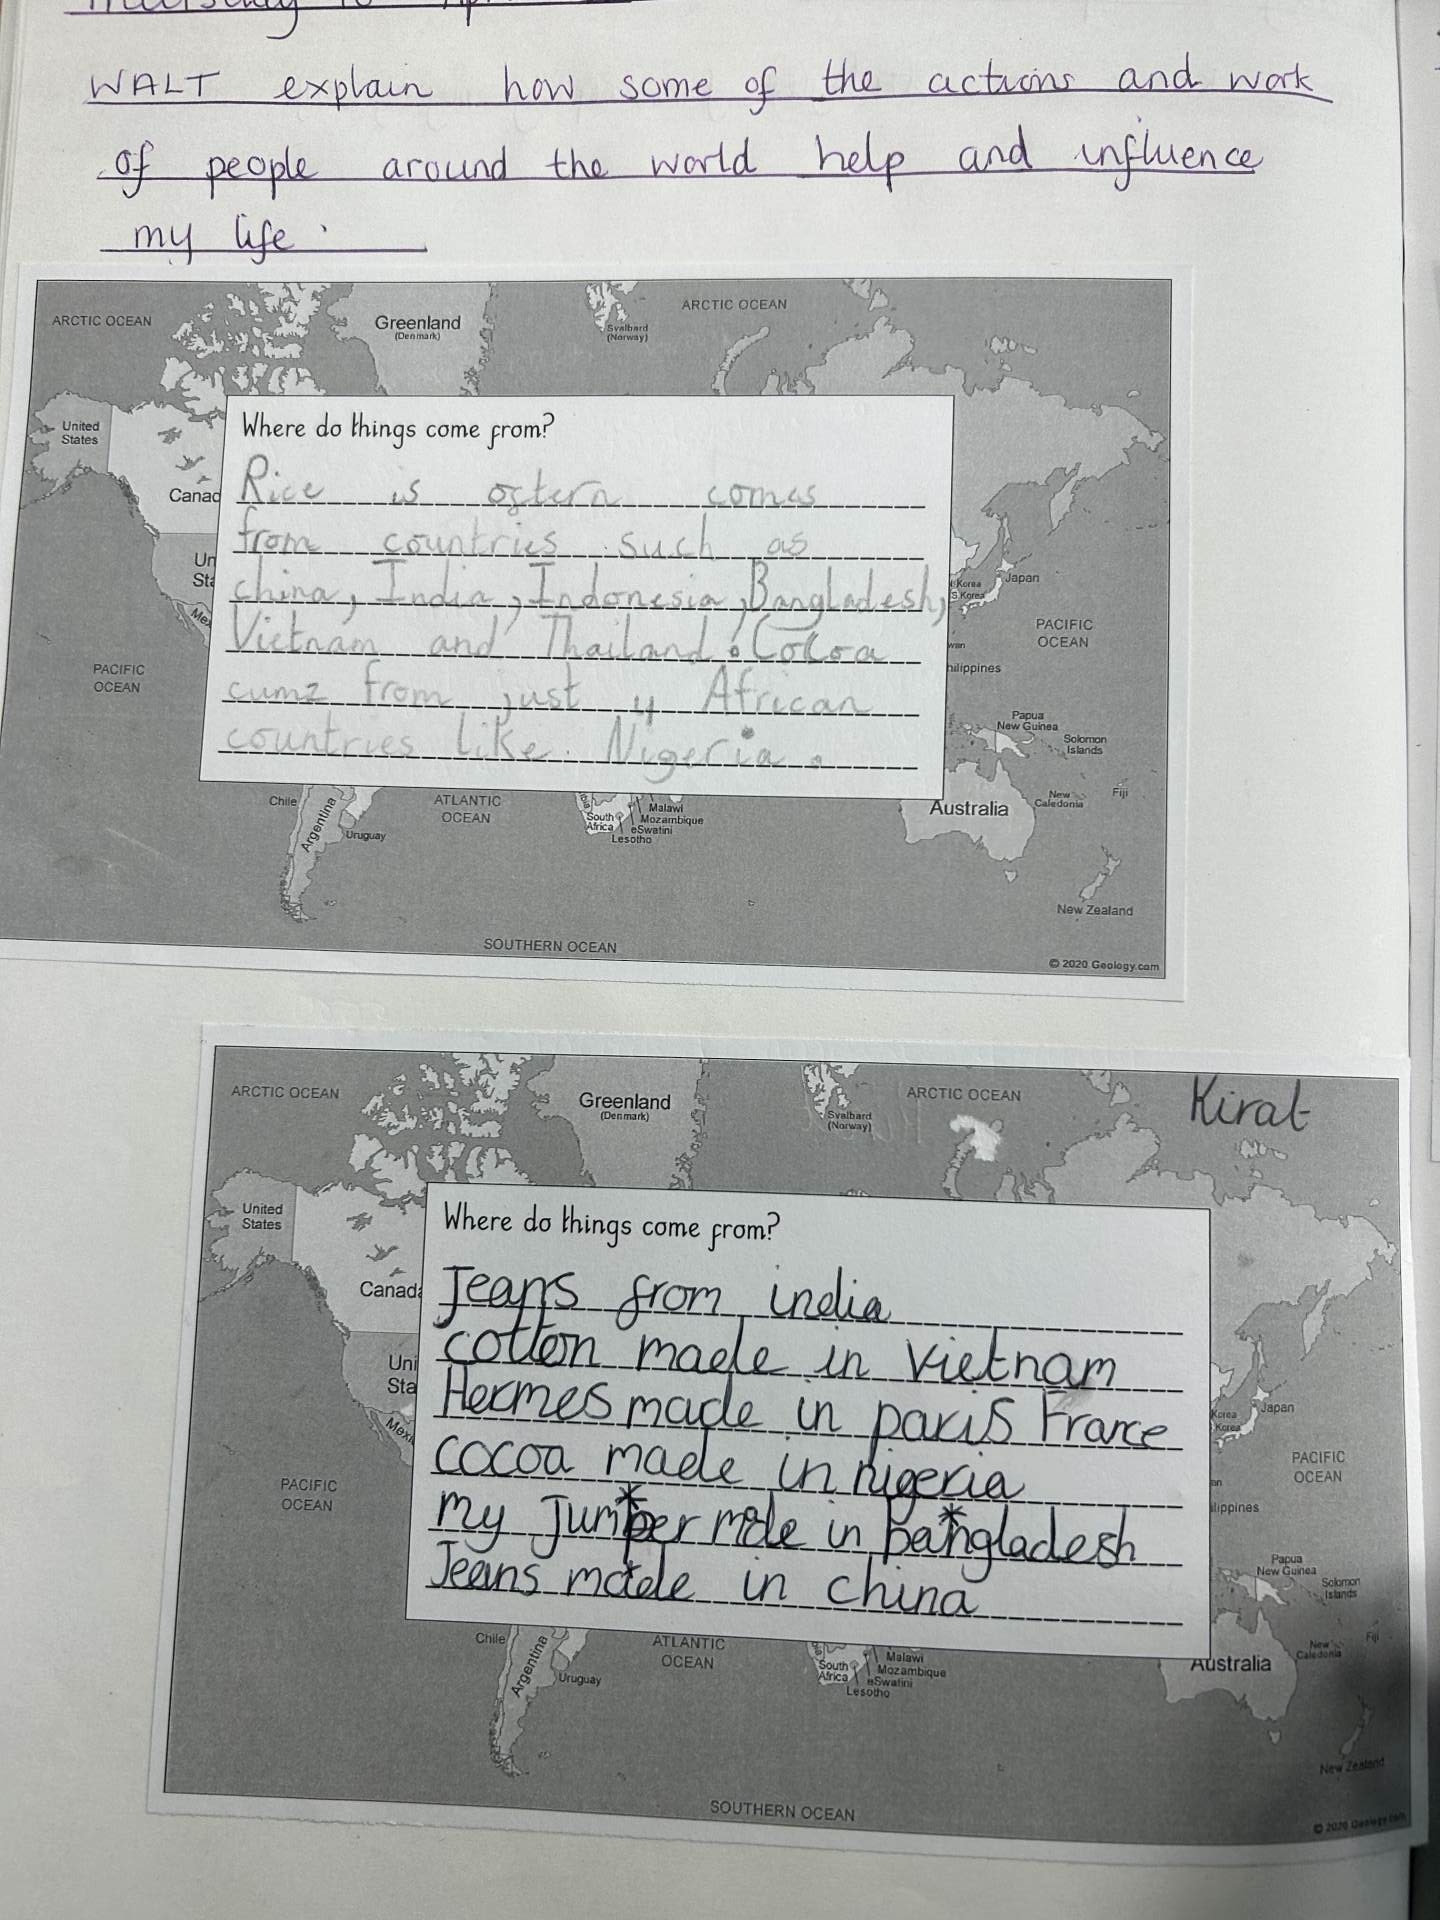 Thursday
WALT explain how some of the actions and work
of people around the world help and influence
my life.
ARCTIC OCEAN
Greenland
(Denmark)
Svalbard
(Norway)
ARCTIC OCEAN
United
States
Canad
Un
Sta
Mex
Where do things come from?
Rice is oftern comes
from countries such as
china, India, Indonesia, Bangladesh,
Vietnam and Thailand. Cocoa
cumz from just 4 African
countries like Nigeria.
Korea
S.Korea
Japan
PACIFIC
OCEAN
wan
hilippines
PACIFIC
OCEAN
Papua
New Guinea
Solomon
Islands
Chile
Argentina
Uruguay
ATLANTIC
OCEAN
South
Africa
Malawi
Mozambique
eSwatini
Lesotho
Australia
New
Caledonia
Fiji
New Zealand
SOUTHERN OCEAN
© 2020 Geology.com
Kirat
ARCTIC OCEAN
Greenland
(Denmark)
Svalbard
(Norway)
ARCTIC OCEAN
United
States
Canada
Uni
Sta
Mexi
Where do things come from?
Jeans from india
cotton made in vietnam
Hermes made in paris France
cocoa made in nigeria
my Jumper made in bangladesh
Jeans made in china
Korea
Korea
Japan
PACIFIC
OCEAN
an
ilippines
PACIFIC
OCEAN
Papua
New Guinea
Solomon
Islands
Chile
Argentina
Uruguay
ATLANTIC
OCEAN
South
Africa
Malawi
Mozambique
eSwatini
Lesotho
Australia
New
Caledonia
Fiji
New Zealand
SOUTHERN OCEAN
© 2020 Geology.com